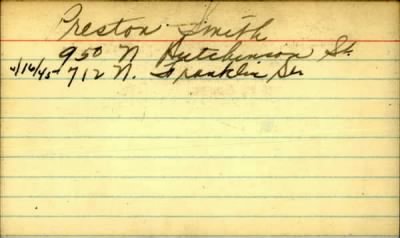 Preston Smith
950 N Hutchinson St.
4/16/45 712 N. Franklin St